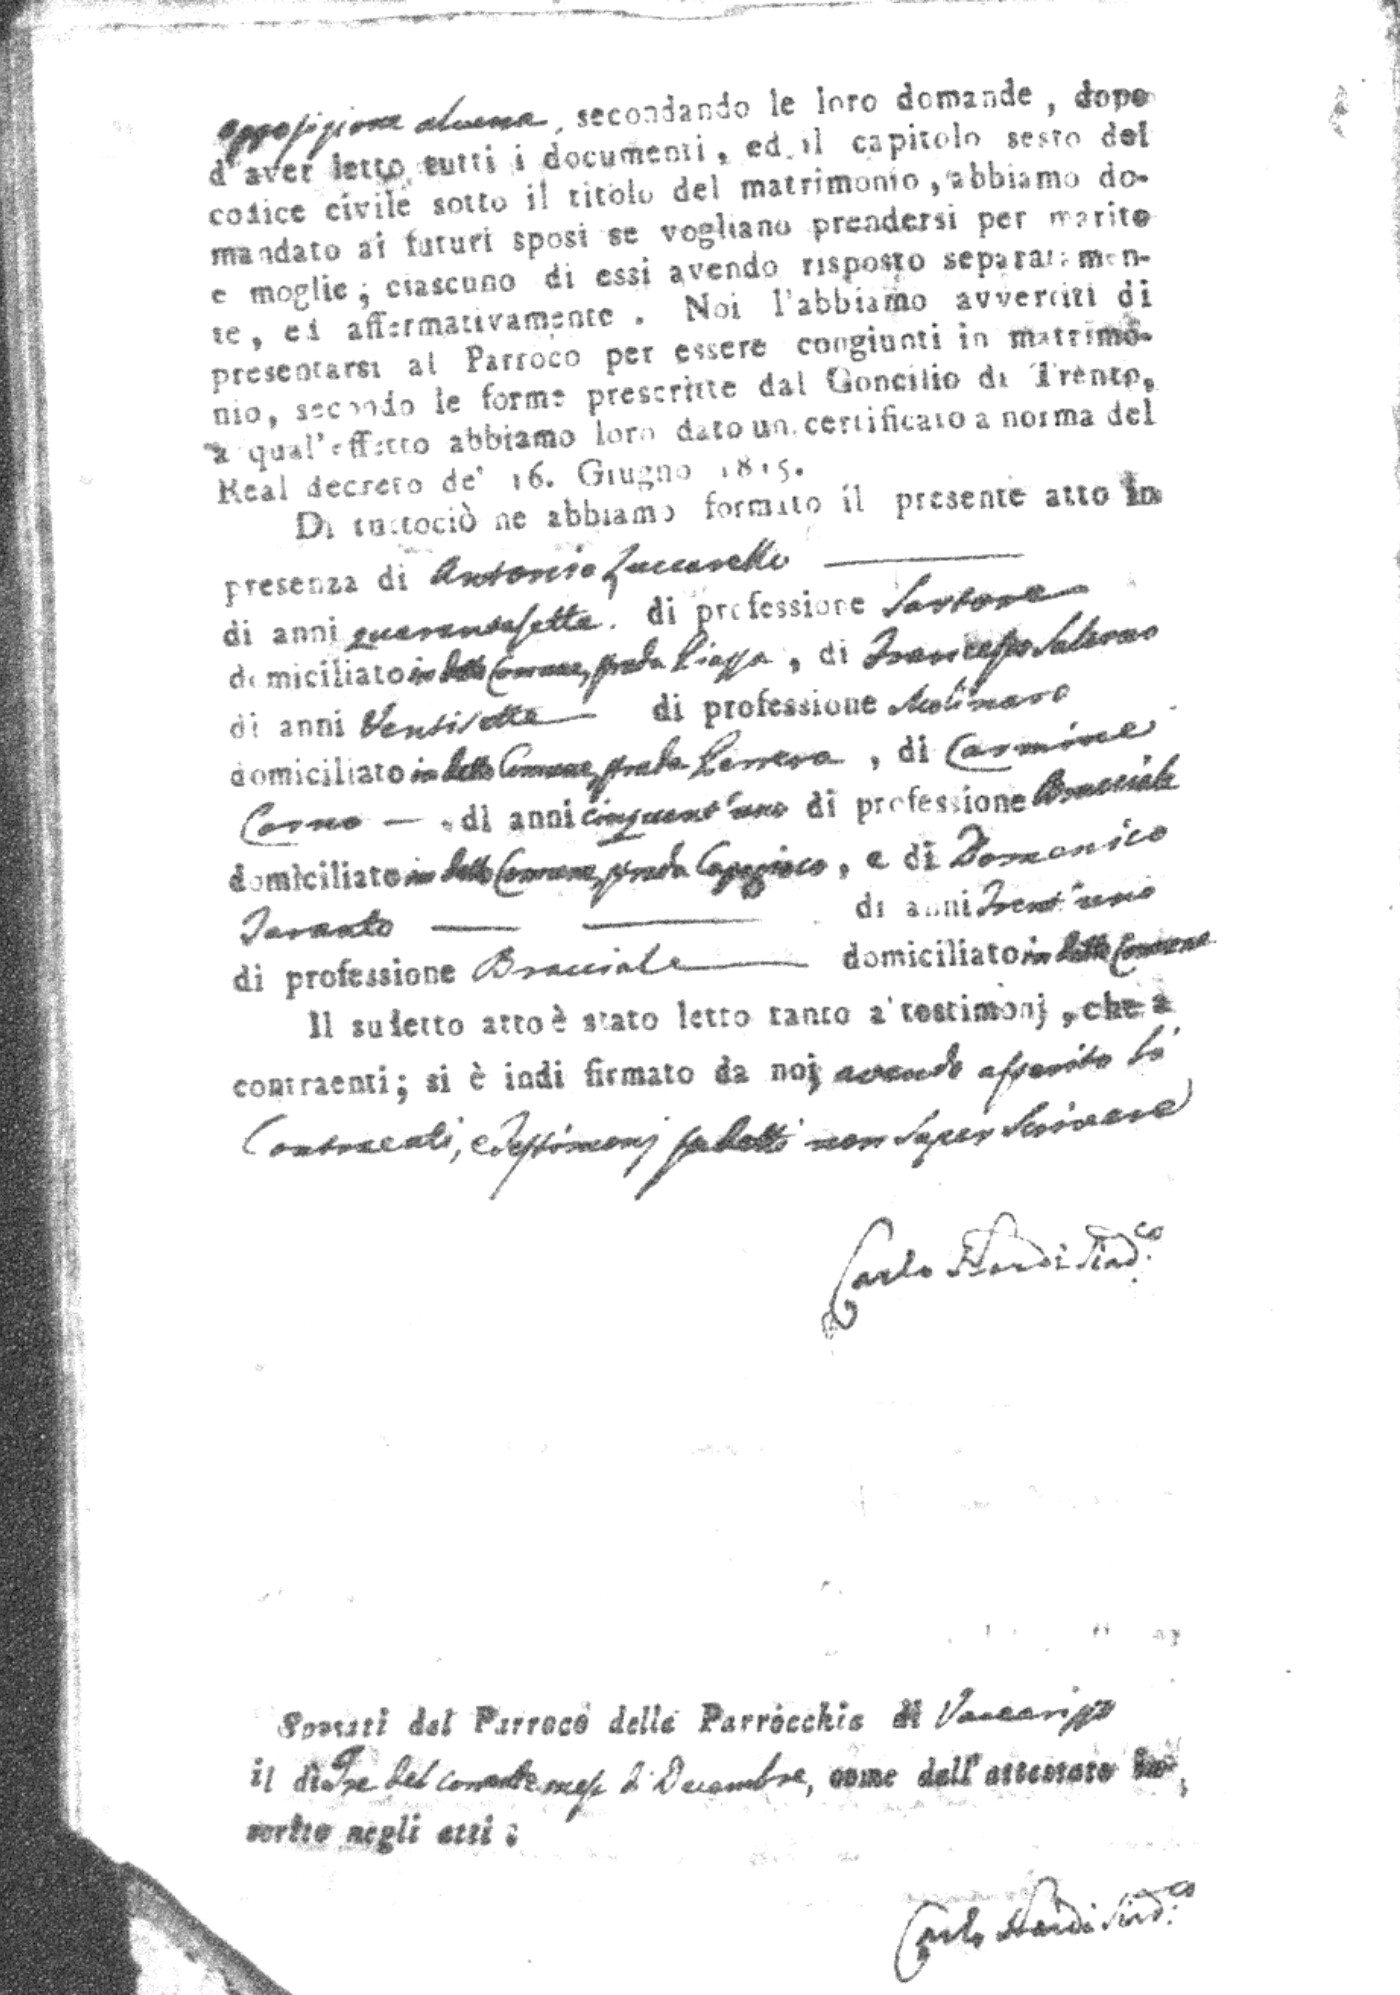 opposizione alcuna, secondando le loro domande, dopo
d'aver letto tutti i documenti, ed il capitolo sesto del
codice civile sotto il titolo del matrimonio, abbiamo do-
mandato ai futuri sposi se vogliano prendersi per marito
e moglie; ciascuno di essi avendo risposto separatamen-
te, ed affermativamente. Noi l'abbiamo avvertiti di
presentarsi al Parroco per essere congiunti in matrimo-
nio, secondo le forme prescritte dal Concilio di Trento,
a qual'effetto abbiamo loro dato un certificato a norma del
Real decreto de' 16. Giugno 1815.
Di tuttociò ne abbiamo formato il presente atto in
presenza di Antonio Zuccarelli
di anni quarantasette. di professione Sartore
domiciliato in detto Comune, strada Piazza, di Francesco Salerno
di anni Ventisette di professione Molinaro
domiciliato in detto Comune, strada, di Carmine
Corno di anni cinquant'uno di professione Bracciale
domiciliato in detto Comune, strada, e di Domenico
Taranto di anni Trent'uno
di professione Bracciale domiciliato in detto Comune
Il sudetto atto è stato letto tanto a' testimonj, che a
contraenti; si è indi firmato da noi, avendo asserito li
Contraenti, e Testimonj sudetti non saper scrivere
Carlo Sind.co
Sposati dal Parroco della Parrocchia di Vaccarizzo
il dì Tre del corrente mese di Decembre, come dall'attestato in-
serito negli atti;
Carlo Sind.co